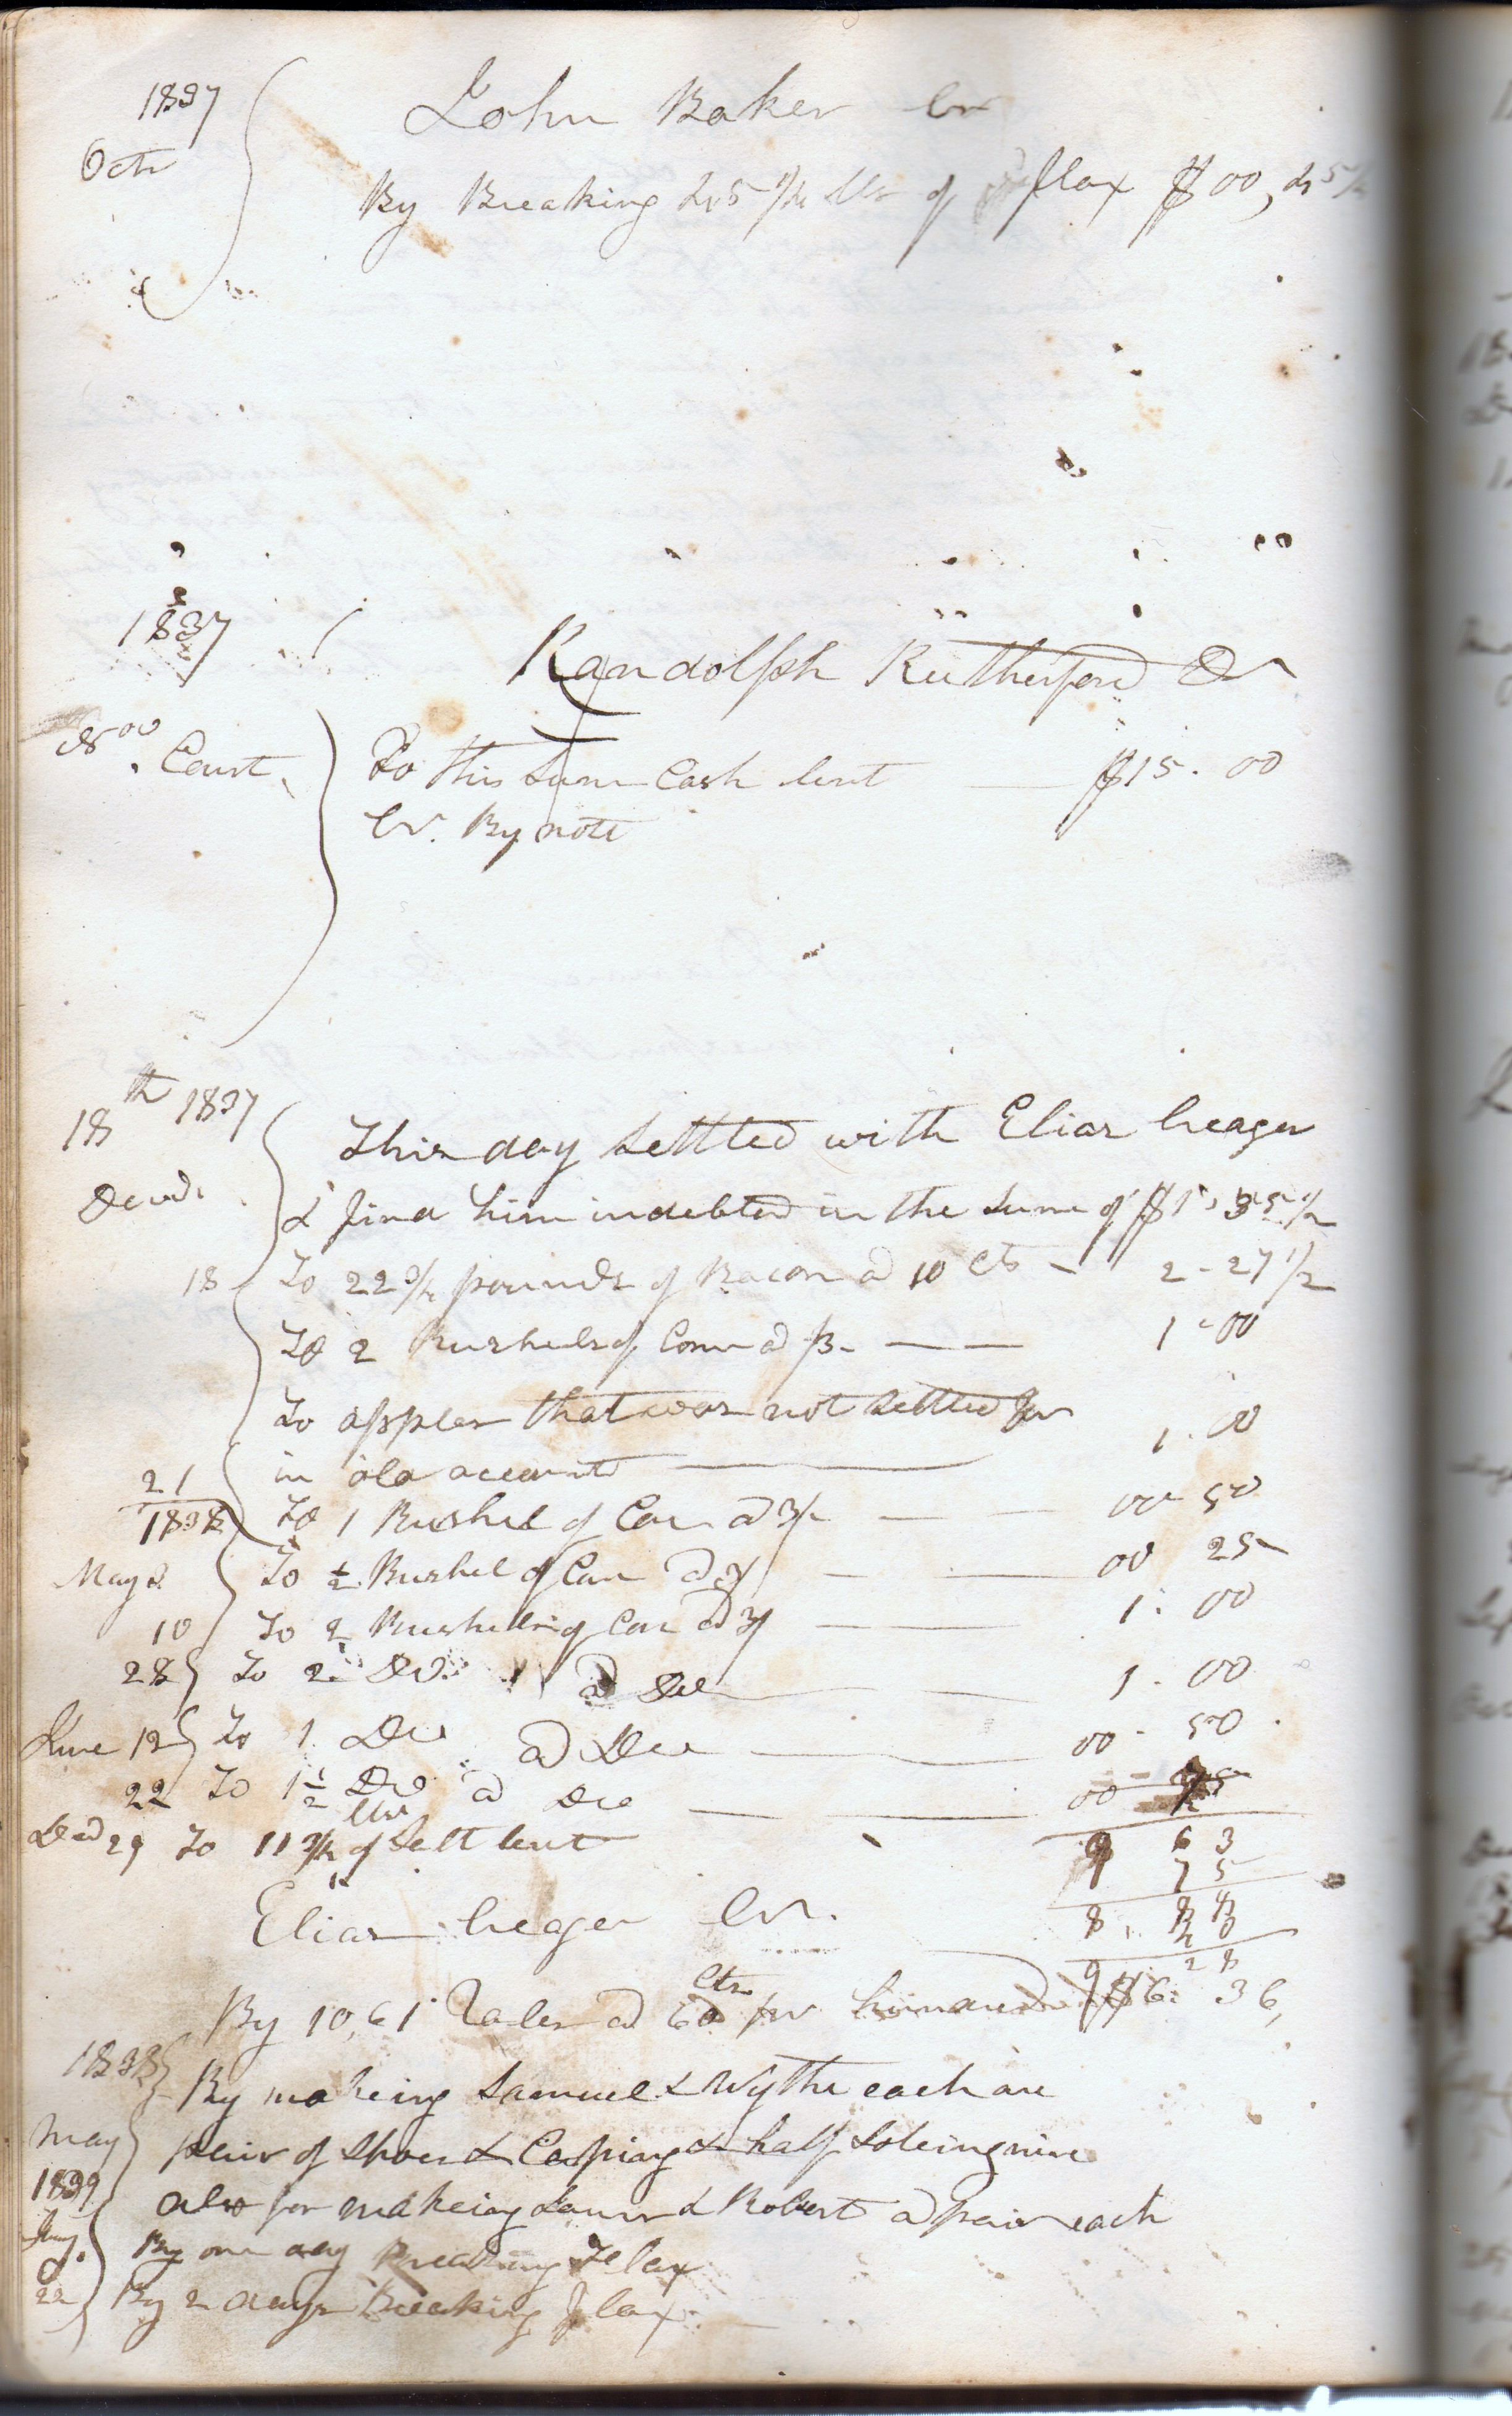 1837
Octr
John Baker Cr
By Breaking 45 1/2 lbs of flax $00, 45 1/2
1837
Randolph Rutherford Dr
Court
To this Sum Cash lent $15. 00
Cr. By note
18th 1837
Decbr
This day Settled with Elias Creager
& find him indebted in the Sum of $1, 35 1/2
18 To 22 3/4 pounds of Bacon a 10 cts - 2-27 1/2
To 2 Bushels of Corn a 3/- 1-00
To apples that was not Settled for
in old account 1.00
21 To 1 Bushel of Corn a 3/- 00 50
1838
May 2 To 1/2 Bushel of Corn a 3/ 00 25
10 To 2 Bushells of Corn a 3/ 1. 00
28 To 2 Do. a Do 1. 00
June 12 To 1 Do a Do 00 - 50
22 To 1 1/2 Do a Do 00 75
lbs
Decd 29 To 11 3/4 of Salt lent 9 63
75
8. 88
40
9 28
Elias Creager Cr.
cts
By 10,61 Rales a 60 pr hundred $6. 36,
1838
May
By makeing Samuel & Wythe each one
pair of Shoes & Caping & half Soleing mine
1839
also for makeing Laura & Robert a pair each
Jany. By one day Breaking Flax
22 By 2 days Breaking flax